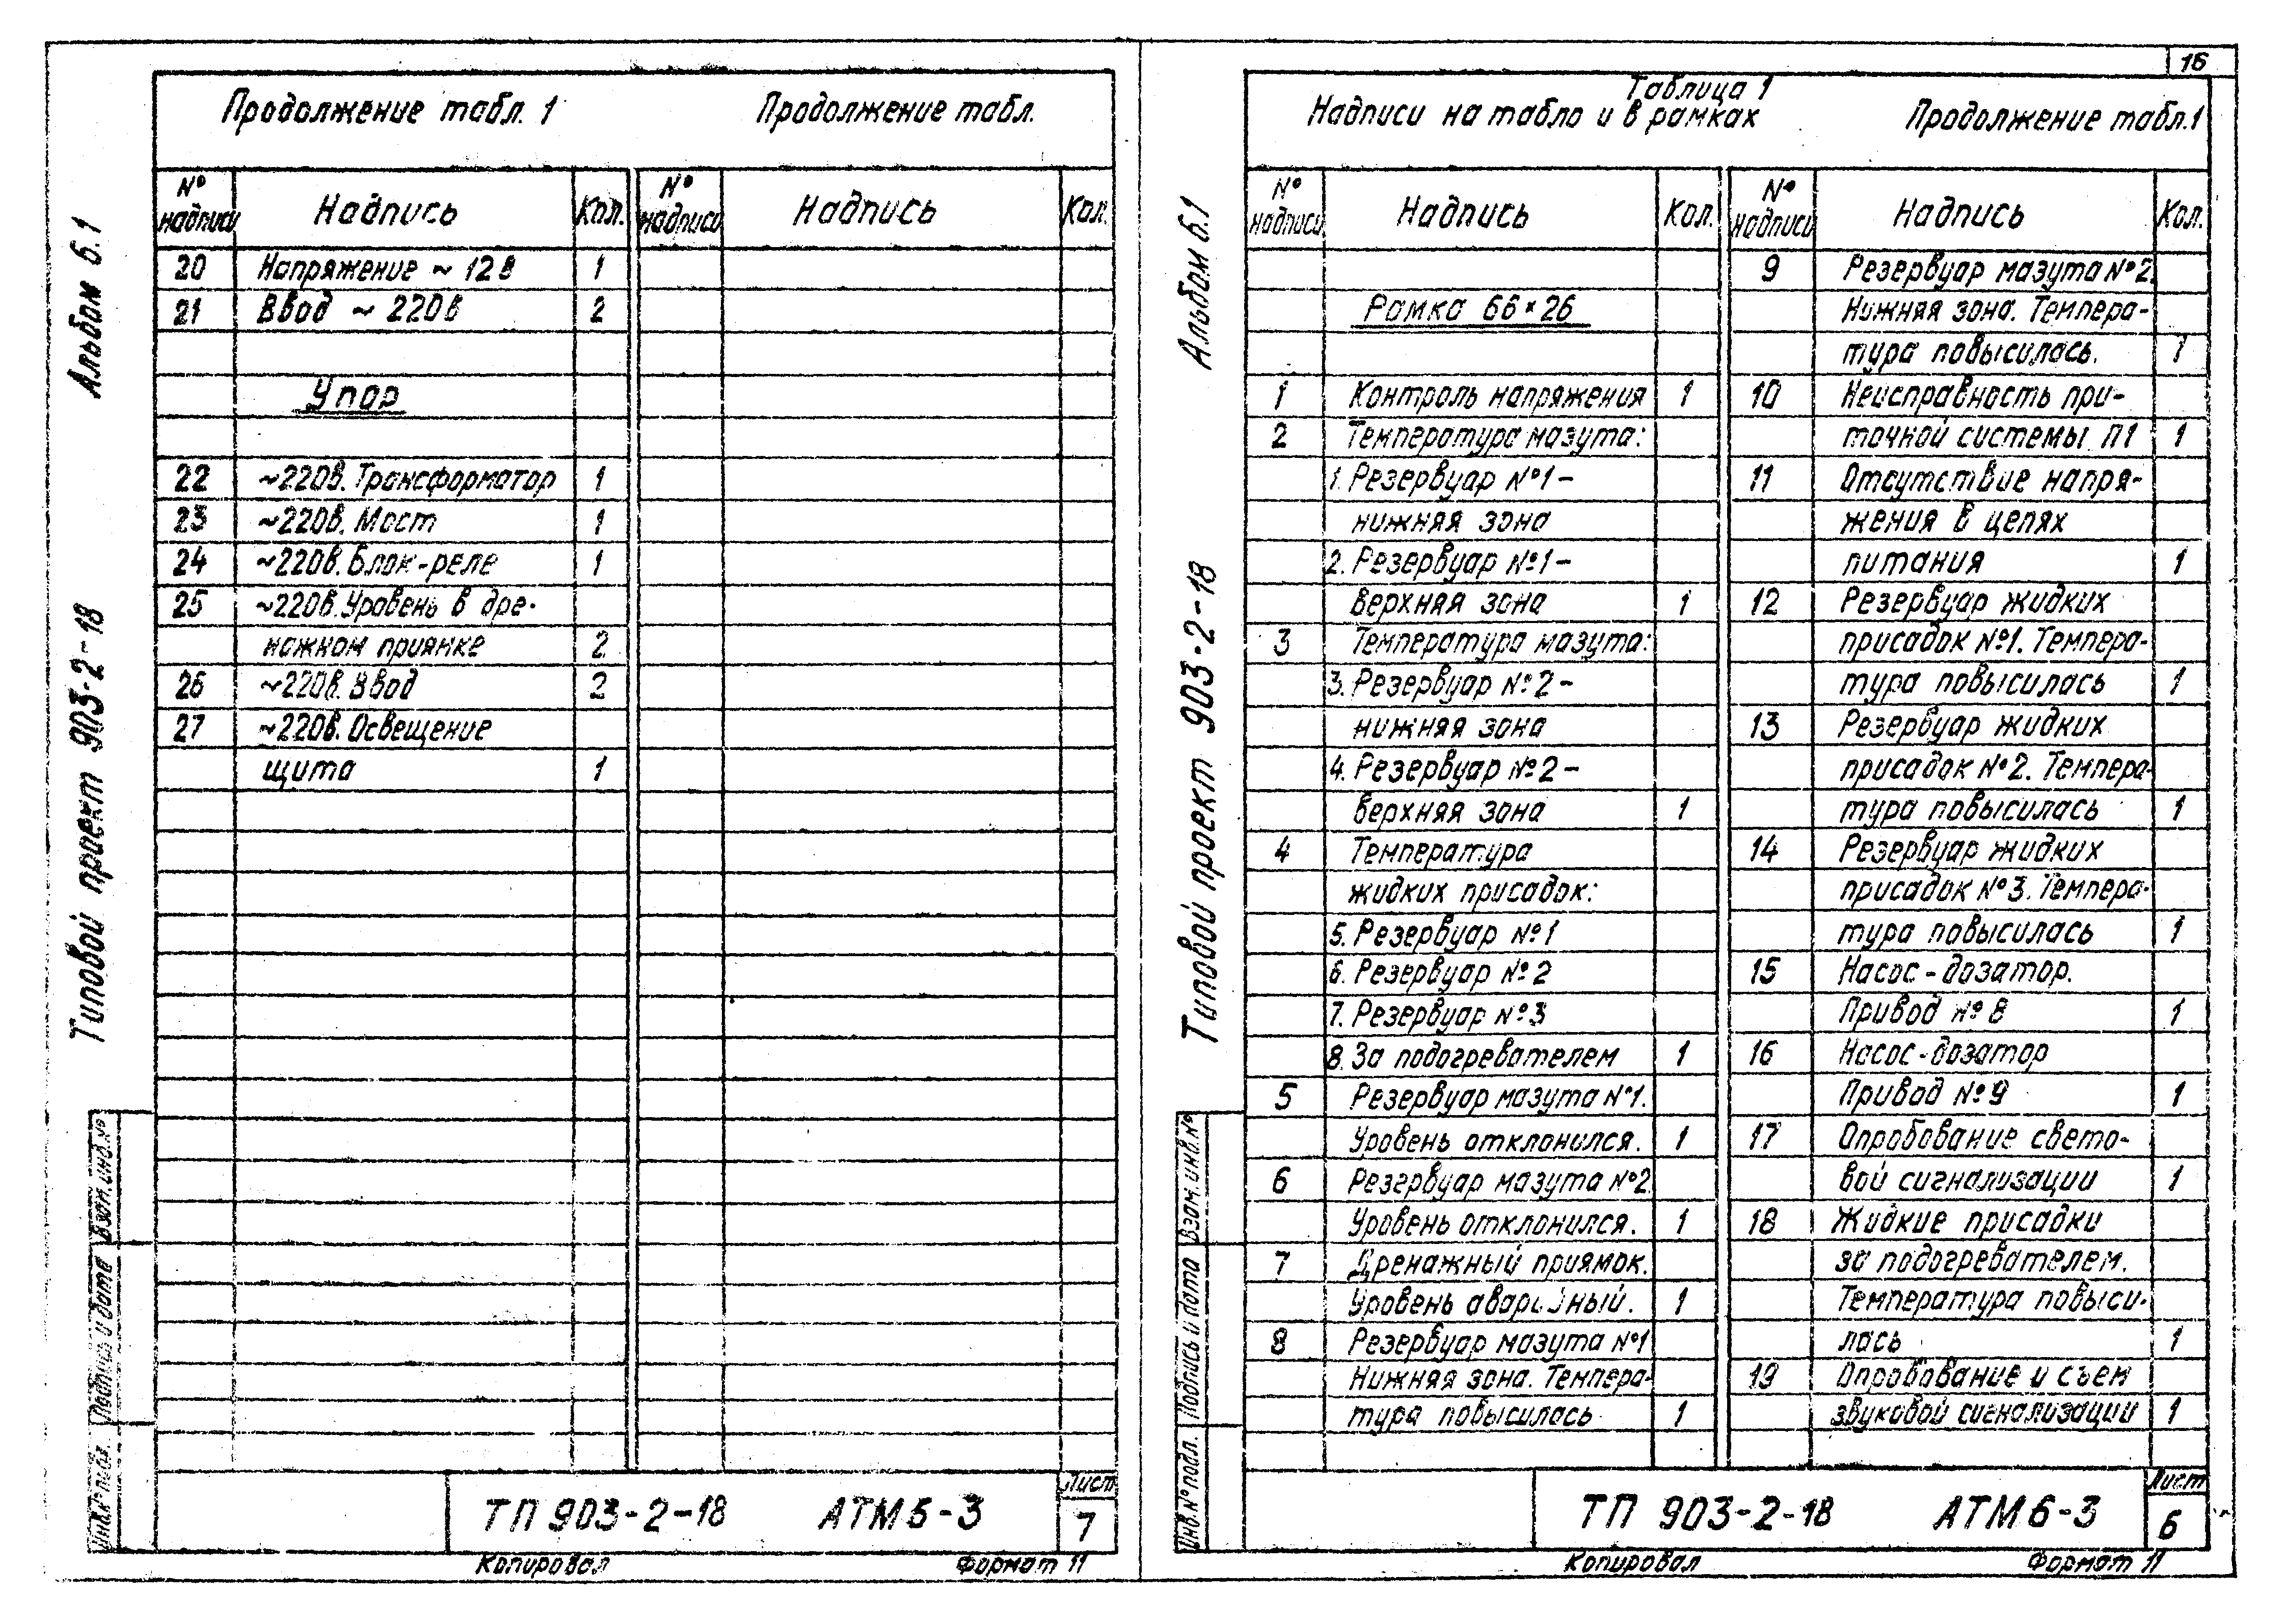 Альбом 6.1
Типовой проект 903-2-18
Продолжение табл. 1
Продолжение табл.
№ надписи Надпись Кол. № надписи Надпись Кол.
20 Напряжение ~ 12в 1
21 Ввод ~ 220в 2
Упор
22 ~220в. Трансформатор 1
23 ~220в. Мост 1
24 ~220в. Блок-реле 1
25 ~220в. Уровень в дре-
нажном приямке 2
26 ~220в. Ввод 2
27 ~220в. Освещение
щита 1
Взам. инв. №
Подпись и дата
Инв. № подл.
ТП 903-2-18 АТМ6-3
Лист
7
Копировал Формат 11
16
Альбом 6.1
Типовой проект 903-2-18
Таблица 1
Надписи на табло и в рамках
№ надписи Надпись Кол.
Рамка 66×26
1 Контроль напряжения 1
2 Температура мазута:
1. Резервуар №1 –
нижняя зона
2. Резервуар №1 –
верхняя зона 1
3 Температура мазута:
3. Резервуар №2 –
нижняя зона
4. Резервуар №2 –
верхняя зона 1
4 Температура
жидких присадок:
5. Резервуар №1
6. Резервуар №2
7. Резервуар №3
8. За подогревателем 1
5 Резервуар мазута №1.
Уровень отклонился. 1
6 Резервуар мазута №2.
Уровень отклонился. 1
7 Дренажный приямок.
Уровень аварийный. 1
8 Резервуар мазута №1
Нижняя зона. Темпера-
тура повысилась 1
Продолжение табл.1
№ надписи Надпись Кол.
9 Резервуар мазута №2.
Нижняя зона. Темпера-
тура повысилась. 1
10 Неисправность при-
точной системы П1 1
11 Отсутствие напря-
жения в цепях
питания 1
12 Резервуар жидких
присадок №1. Темпера-
тура повысилась 1
13 Резервуар жидких
присадок №2. Темпера-
тура повысилась 1
14 Резервуар жидких
присадок №3. Темпера-
тура повысилась 1
15 Насос-дозатор.
Привод №8 1
16 Насос-дозатор
Привод №9 1
17 Опробование свето-
вой сигнализации 1
18 Жидкие присадки
за подогревателем.
Температура повыси-
лась 1
19 Опробование и съем
звуковой сигнализации 1
Взам. инв. №
Подпись и дата
Инв. № подл.
ТП 903-2-18 АТМ6-3
Лист
6
Копировал Формат 11